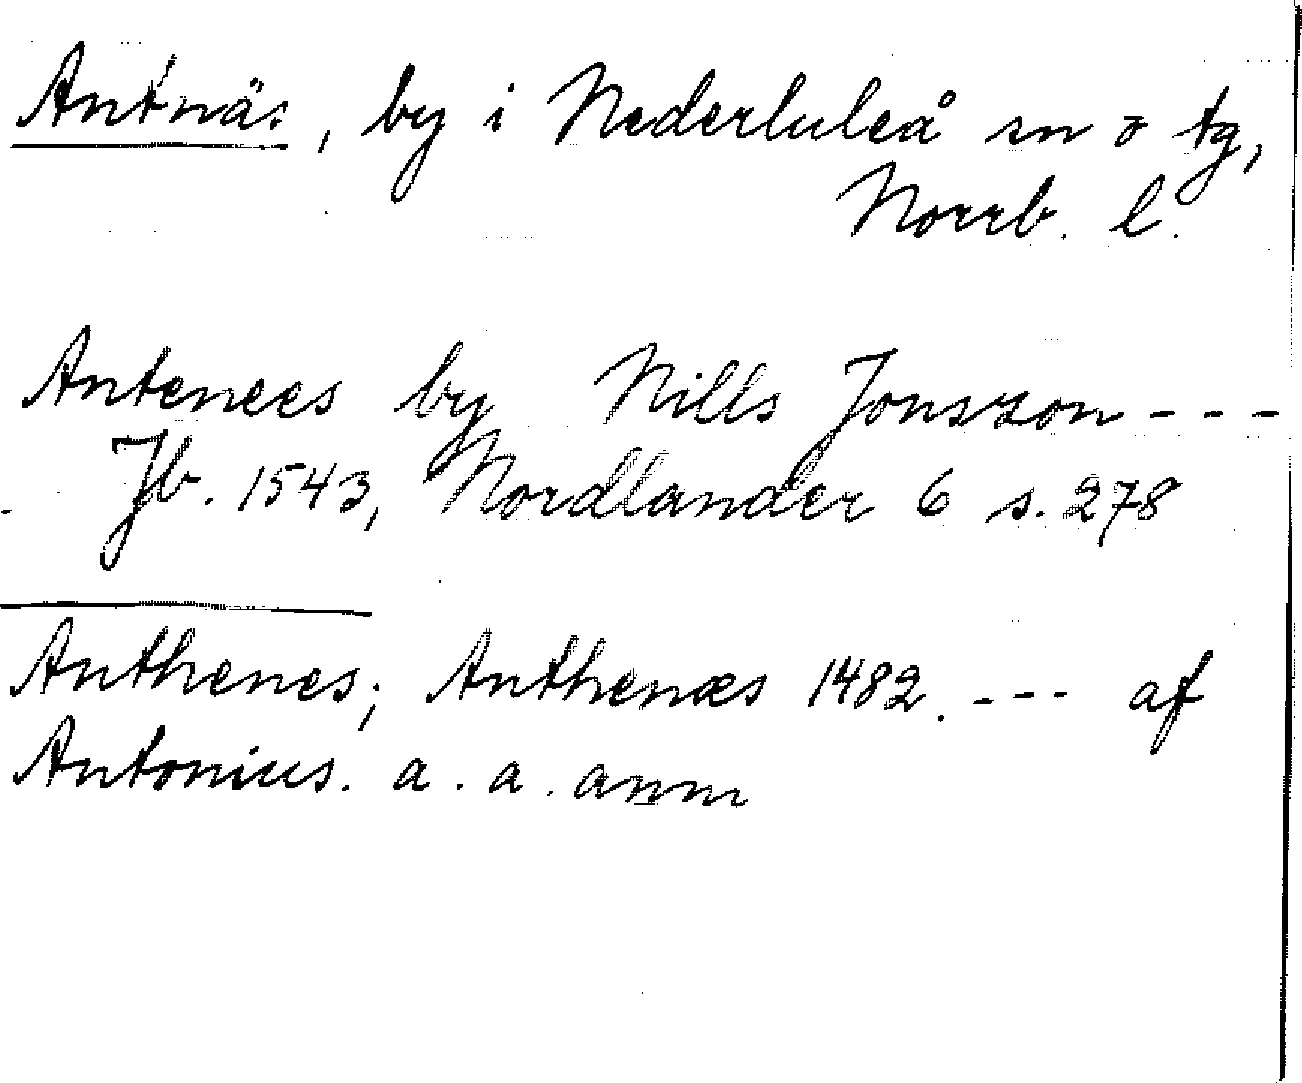 Antnäs, by i Nederluleå sn o tg,
Norrb. l.
Antenees by Nills Jonsson - - -
Jb. 1543, Nordlander 6 s. 278
Anthenes; Anthenæs 1482. - - - af
Antonius. a. a. anm